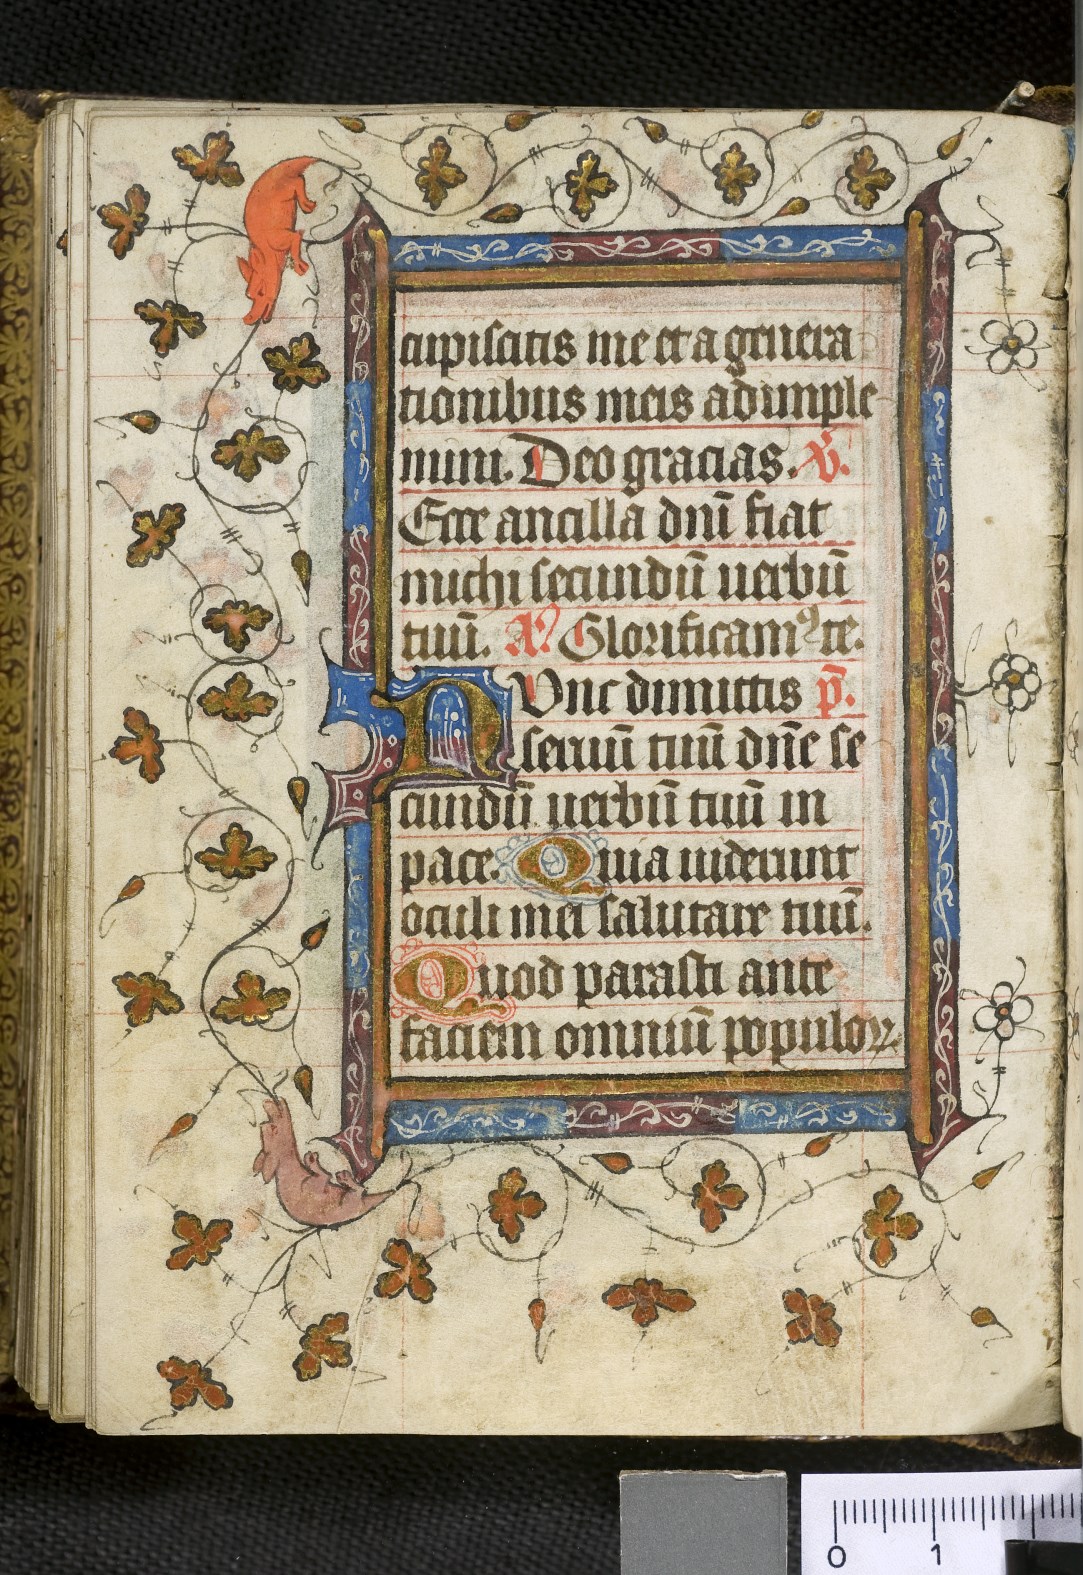 cupiscitis me et a genera
tionibus meis adimple
mini. Deo gracias. v̄.
Ecce ancilla dnī fiat
michi secundū uerbū
tuū. An̄ Glorificamꝰ te.
Nunc dimittis p̄.
seruū tuū dn̄e se
cundū uerbū tuū in
pace. Quia uiderunt
oculi mei salutare tuū.
Quod parasti ante
faciem omniū populoꝝ.
0 1